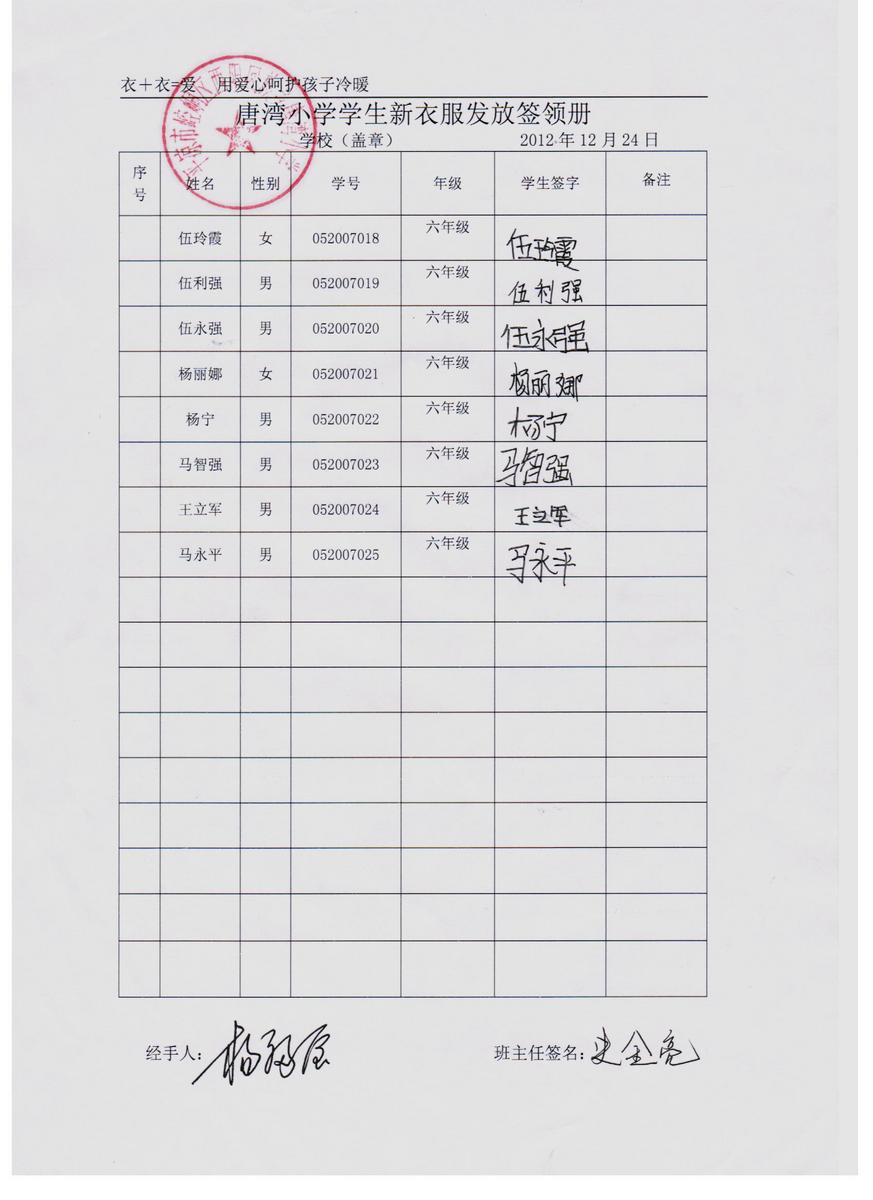 衣＋衣=爱　用爱心呵护孩子冷暖
唐湾小学学生新衣服发放签领册
学校（盖章） 2012 年 12 月 24 日
序号 姓名 性别 学号 年级 学生签字 备注
伍玲霞 女 052007018 六年级 伍玲霞
伍利强 男 052007019 六年级 伍利强
伍永强 男 052007020 六年级 伍永强
杨丽娜 女 052007021 六年级 杨丽娜
杨宁 男 052007022 六年级 杨宁
马智强 男 052007023 六年级 马智强
王立军 男 052007024 六年级 王立军
马永平 男 052007025 六年级 马永平
经手人： 班主任签名：史金亮